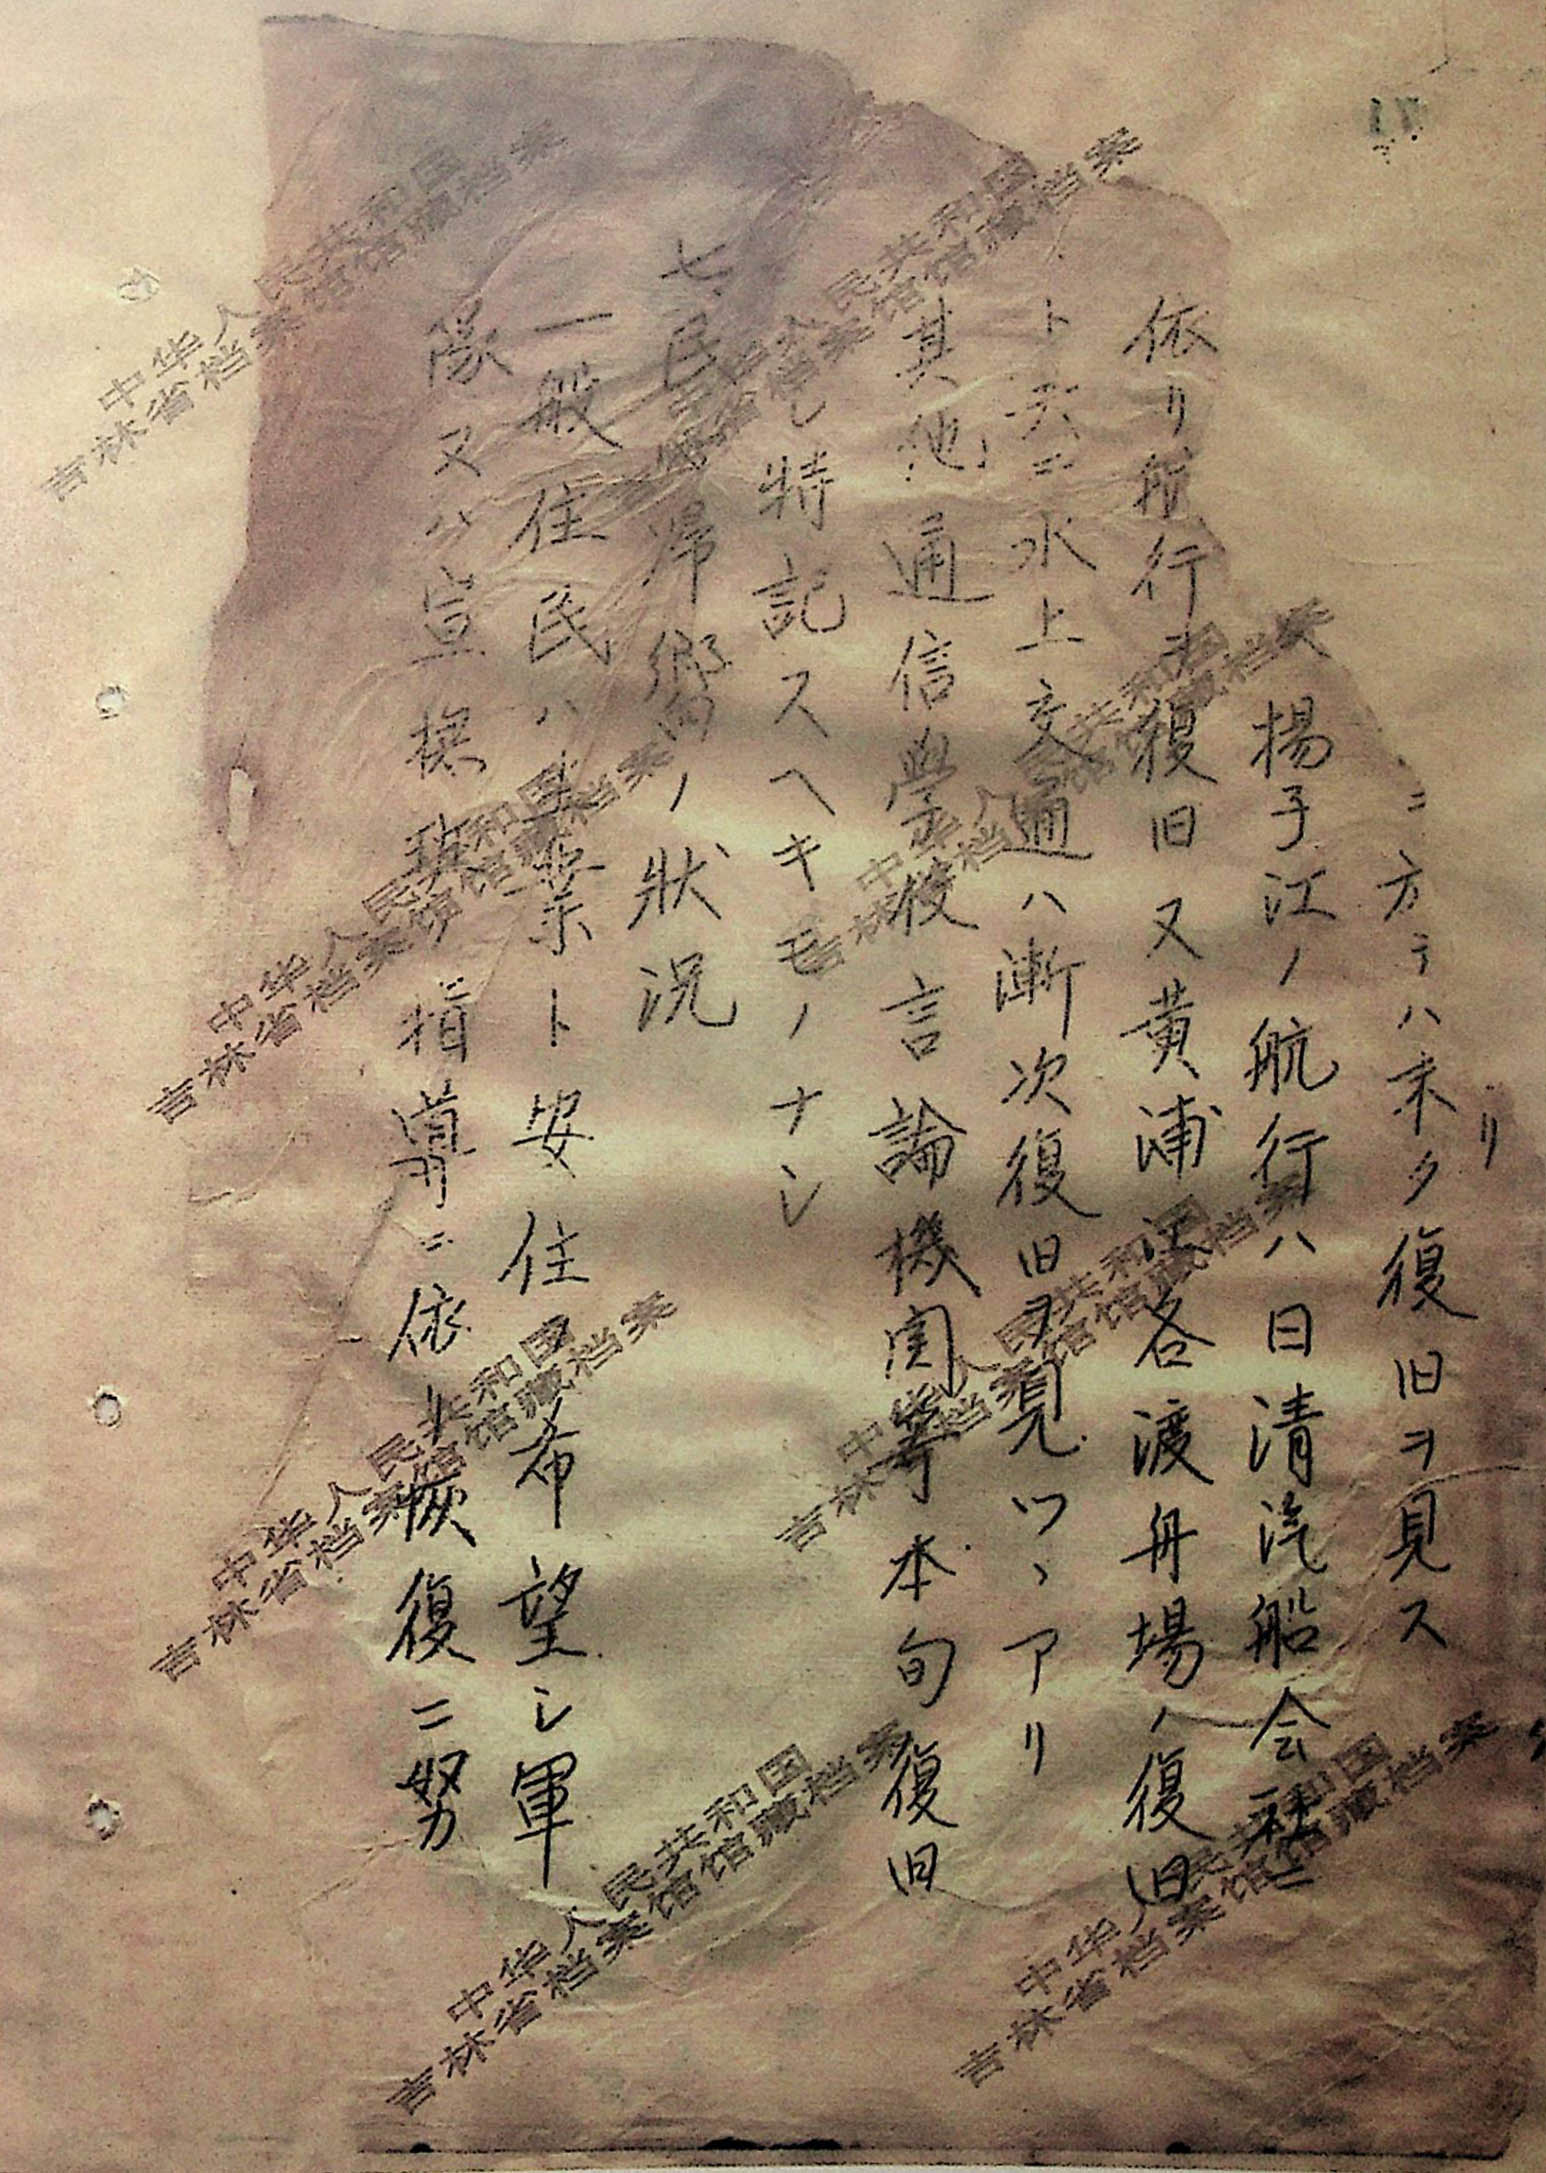 リ
ニ方テハ未タ復旧ヲ見ス
揚子江ノ航行ハ日清汽船会社ニ
依リ航行ヲ復旧又黄浦江各渡舟場ノ復旧
ト共ニ水上交通ハ漸次復旧ヲ見ツヽアリ
其他通信學校言論機関等本旬復旧
シ特記スヘキモノナシ
七、民心帰嚮ノ状況
一般住民ハ生業ト安住ヲ希望シ軍
隊又ハ宣撫班ノ指導ニ依リ恢復ニ努
71
中华人民共和国
吉林省档案馆馆藏档案
中华人民共和国
吉林省档案馆馆藏档案
中华人民共和国
吉林省档案馆馆藏档案
中华人民共和国
吉林省档案馆馆藏档案
中华人民共和国
吉林省档案馆馆藏档案
中华人民共和国
吉林省档案馆馆藏档案
中华人民共和国
吉林省档案馆馆藏档案
中华人民共和国
吉林省档案馆馆藏档案